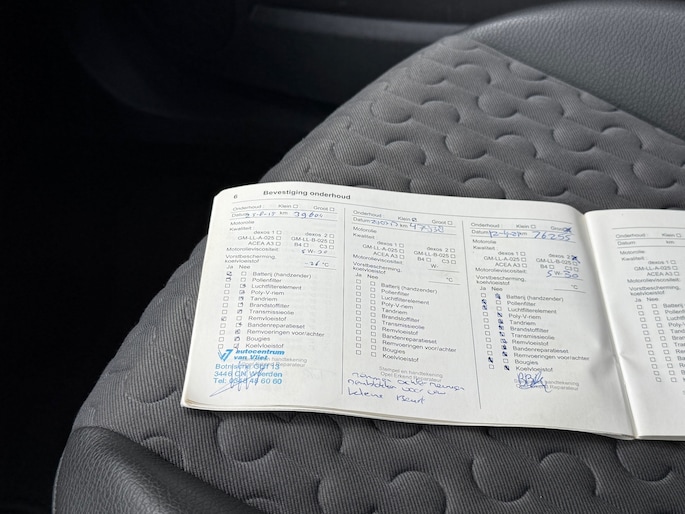 6 Bevestiging onderhoud
Onderhoud : Klein Groot
Datum km 39604
Motorolie
Kwaliteit dexos 1 dexos 2
GM-LL-A-025 GM-LL-B-025
ACEA A3 B4 C3
Motorolieviscositeit: 5 W- 30
Vorstbescherming,
koelvloeistof -26 °C
Ja Nee
Batterij (handzender)
Pollenfilter
Luchtfilterelement
Poly-V-riem
Tandriem
Brandstoffilter
Transmissieolie
Remvloeistof
Bandenreparatieset
Remvoeringen voor/achter
Bougies
Koelvloeistof
autocentrum
van Vliet
3446 CN Woerden
Tel: 0348 48 60 60
Onderhoud : Klein Groot
Datum km
Motorolie
Kwaliteit: dexos 1 dexos 2
GM-LL-A-025 GM-LL-B-025
ACEA A3 B4 C3
Motorolieviscositeit: W-
Vorstbescherming,
koelvloeistof °C
Ja Nee
Batterij (handzender)
Pollenfilter
Luchtfilterelement
Poly-V-riem
Tandriem
Brandstoffilter
Transmissieolie
Remvloeistof
Bandenreparatieset
Remvoeringen voor/achter
Bougies
Koelvloeistof
Stempel en handtekening
Opel Erkend Reparateur
voor uw
kleine Beurt
Onderhoud : Klein Groot
Datum km 76255
Motorolie
Kwaliteit: dexos 1 dexos 2
GM-LL-A-025 GM-LL-B-025
ACEA A3 B4 C3
Motorolieviscositeit: 5 W- 30
Vorstbescherming,
koelvloeistof °C
Ja Nee
Batterij (handzender)
Pollenfilter
Luchtfilterelement
Poly-V-riem
Tandriem
Brandstoffilter
Transmissieolie
Remvloeistof
Bandenreparatieset
Remvoeringen voor/achter
Bougies
Koelvloeistof
Onderhoud :
Datum km
Motorolie
Kwaliteit: dexos 1
GM-LL-A-025
ACEA A3
Motorolieviscositeit:
Vorstbescherming,
koelvloeistof
Ja Nee